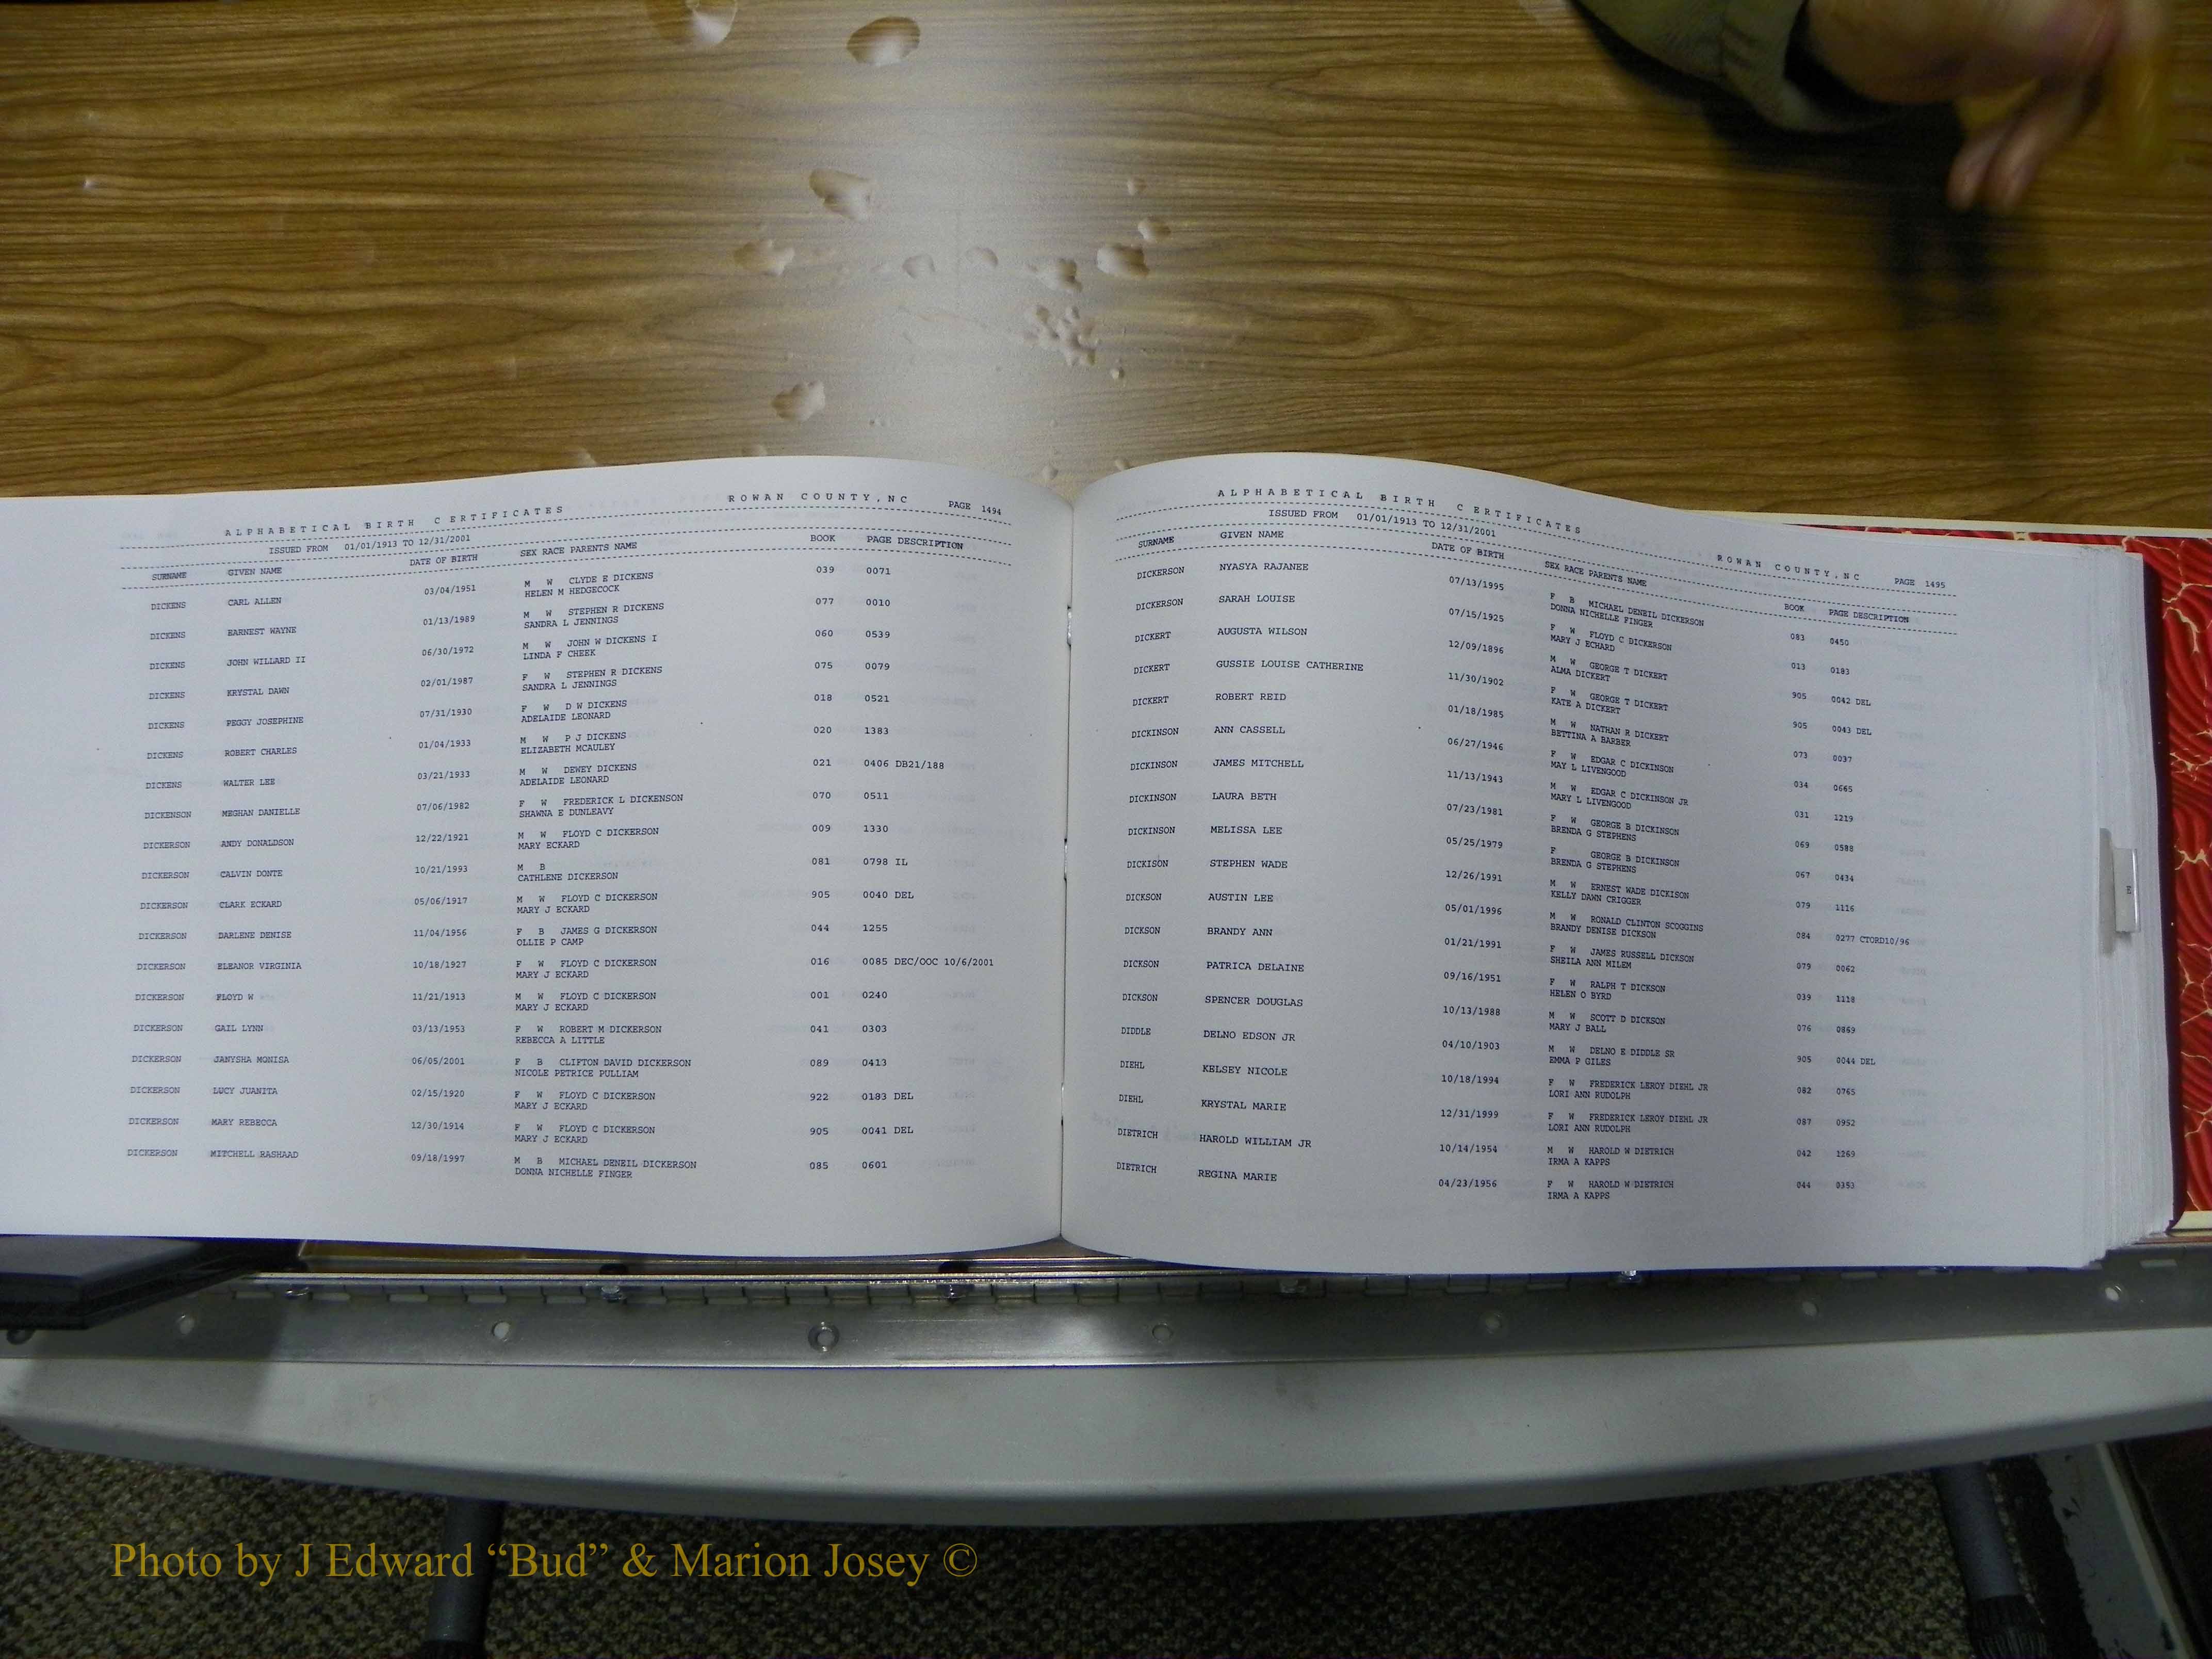 ALPHABETICAL BIRTH C ERTIFICATES ROWAN COUNTY, NC PAGE 1494
ISSUED FROM 01/01/1913 TO 12/31/2001
SURNAME GIVEN NAME DATE OF BIRTH SEX RACE PARENTS NAME BOOK PAGE DESCRIPTION
DICKENS CARL ALLEN 03/04/1951 M W CLYDE E DICKENS 039 0071
HELEN M HEDGECOCK
DICKENS EARNEST WAYNE 01/13/1989 M W STEPHEN R DICKENS 077 0010
SANDRA L JENNINGS
DICKENS JOHN WILLARD II 06/30/1972 M W JOHN W DICKENS I 060 0539
LINDA F CHEEK
DICKENS KRYSTAL DAWN 02/01/1987 F W STEPHEN R DICKENS 075 0079
SANDRA L JENNINGS
DICKENS PEGGY JOSEPHINE 07/31/1930 F W D W DICKENS 018 0521
ADELAIDE LEONARD
DICKENS ROBERT CHARLES 01/04/1933 M W P J DICKENS 020 1383
ELIZABETH MCAULEY
DICKENS WALTER LEE 03/21/1933 M W DEWEY DICKENS 021 0406 DB21/188
ADELAIDE LEONARD
DICKENSON MEGHAN DANIELLE 07/06/1982 F W FREDERICK L DICKENSON 070 0511
SHAWNA E DUNLEAVY
DICKERSON ANDY DONALDSON 12/22/1921 M W FLOYD C DICKERSON 009 1330
MARY ECKARD
DICKERSON CALVIN DONTE 10/21/1993 M B 081 0798 IL
CATHLENE DICKERSON
DICKERSON CLARK ECKARD 05/06/1917 M W FLOYD C DICKERSON 905 0040 DEL
MARY J ECKARD
DICKERSON DARLENE DENISE 11/04/1956 F B JAMES G DICKERSON 044 1255
OLLIE P CAMP
DICKERSON ELEANOR VIRGINIA 10/18/1927 F W FLOYD C DICKERSON 016 0085 DEC/OOC 10/6/2001
MARY J ECKARD
DICKERSON FLOYD W 11/21/1913 M W FLOYD C DICKERSON 001 0240
MARY J ECKARD
DICKERSON GAIL LYNN 03/13/1953 F W ROBERT M DICKERSON 041 0303
REBECCA A LITTLE
DICKERSON JANYSHA MONISA 06/05/2001 F B CLIFTON DAVID DICKERSON 089 0413
NICOLE PETRICE PULLIAM
DICKERSON LUCY JUANITA 02/15/1920 F W FLOYD C DICKERSON 922 0183 DEL
MARY J ECKARD
DICKERSON MARY REBECCA 12/30/1914 F W FLOYD C DICKERSON 905 0041 DEL
MARY J ECKARD
DICKERSON MITCHELL RASHAAD 09/18/1997 M B MICHAEL DENEIL DICKERSON 085 0601
DONNA NICHELLE FINGER
ALPHABETICAL BIRTH C ERTIFICATES ROWAN COUNTY, NC PAGE 1495
ISSUED FROM 01/01/1913 TO 12/31/2001
SURNAME GIVEN NAME DATE OF BIRTH SEX RACE PARENTS NAME BOOK PAGE DESCRIPTION
DICKERSON NYASYA RAJANEE 07/13/1995 F B MICHAEL DENEIL DICKERSON 083 0450
DONNA NICHELLE FINGER
DICKERSON SARAH LOUISE 07/15/1925 F W FLOYD C DICKERSON 013 0183
MARY J ECHARD
DICKERT AUGUSTA WILSON 12/09/1896 M W GEORGE T DICKERT 905 0042 DEL
ALMA DICKERT
DICKERT GUSSIE LOUISE CATHERINE 11/30/1902 F W GEORGE T DICKERT 905 0043 DEL
KATE A DICKERT
DICKERT ROBERT REID 01/18/1985 M W NATHAN R DICKERT 073 0037
BETTINA A BARBER
DICKINSON ANN CASSELL 06/27/1946 F W EDGAR C DICKINSON 034 0665
MAY L LIVENGOOD
DICKINSON JAMES MITCHELL 11/13/1943 M W EDGAR C DICKINSON JR 031 1219
MARY L LIVENGOOD
DICKINSON LAURA BETH 07/23/1981 F W GEORGE B DICKINSON 069 0588
BRENDA G STEPHENS
DICKINSON MELISSA LEE 05/25/1979 F GEORGE B DICKINSON 067 0434
BRENDA G STEPHENS
DICKISON STEPHEN WADE 12/26/1991 M W ERNEST WADE DICKISON 079 1116
KELLY DAWN CRIGGER
DICKSON AUSTIN LEE 05/01/1996 M W RONALD CLINTON SCOGGINS 084 0277 CTORD10/96
BRANDY DENISE DICKSON
DICKSON BRANDY ANN 01/21/1991 F W JAMES RUSSELL DICKSON 079 0062
SHEILA ANN MILEM
DICKSON PATRICA DELAINE 09/16/1951 F W RALPH T DICKSON 039 1118
HELEN O BYRD
DICKSON SPENCER DOUGLAS 10/13/1988 M W SCOTT D DICKSON 076 0869
MARY J BALL
DIDDLE DELNO EDSON JR 04/10/1903 M W DELNO E DIDDLE SR 905 0044 DEL
EMMA P GILES
DIEHL KELSEY NICOLE 10/18/1994 F W FREDERICK LEROY DIEHL JR 082 0765
LORI ANN RUDOLPH
DIEHL KRYSTAL MARIE 12/31/1999 F W FREDERICK LEROY DIEHL JR 087 0952
LORI ANN RUDOLPH
DIETRICH HAROLD WILLIAM JR 10/14/1954 M W HAROLD W DIETRICH 042 1269
IRMA A KAPPS
DIETRICH REGINA MARIE 04/23/1956 F W HAROLD W DIETRICH 044 0353
IRMA A KAPPS
Photo by J Edward “Bud” & Marion Josey ©